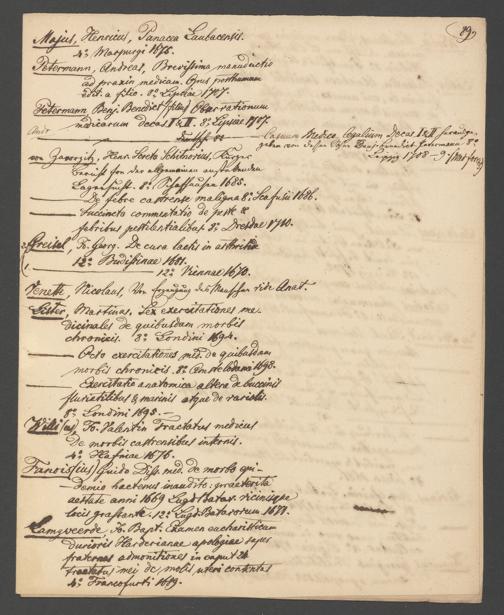 89
Majus, Henricus, Panacea Laubacensis.
4.° Marpurgi 1675.
Petermann, Andreas, Brevissima manuductio
ad praxin medicam. Opus posthumum
edit. a filio. 8.° Lipsiae 1707.
Petermann Benj. Benedict (filius) Observationum
medicarum decas I & II. 8.° Lipsiae 1707.
Andr. Casuum Medico legalium Decas I & II
geben von dessen Sohn Benj. Benedict Petermann 8.°
Leipzig 1708
von Henr. Screta Schotnovius, Kurzer
Bericht von der allgemeinen
8.° Schaffhausen 1685.
De febre castrensi maligna 8.° Scafusii 1686.
Succincta commentatio de peste &
febribus pestilentialibus 8.° Dresdae 1740.
Greisel, Jo. Georg. De cura lactis in arthritide
12.° Budissinae 1681.
12.° Viennae 1670.
Venette Nicolaus, Von Erzeugung des Menschen vide Anat.
Lister, Martinus. Sex exercitationes me-
dicinales de quibusdam morbis
chronicis. 8.° Londini 1694.
Octo exercitationes med. de quibusdam
morbis chronicis. 8.° Amstelodami 1698.
Exercitatio anatomica altera de buccinis
fluviatilibus & marinis atque de variolis.
8.° Londini 1695.
Willi(us) Jo. Valentin Tractatus medicus
de morbis castrensibus internis.
4.° Hafniae 1676.
Fanois(ius) Guido Diss. med. de morbo epi-
demio hactenus inaudito, praeterita
aestate anni 1669 Lugd. Batav. vicinisque
locis grassante. 12.° Lugd. Batavorum 1671.
Lamzveerde, Jo. Bapt. Examen eucharisticum
durioris Harderianae apologiae super
fraternas admonitiones in caput 24
tractatus mei de molis uteri contentas
4.° Francofurti 1689.